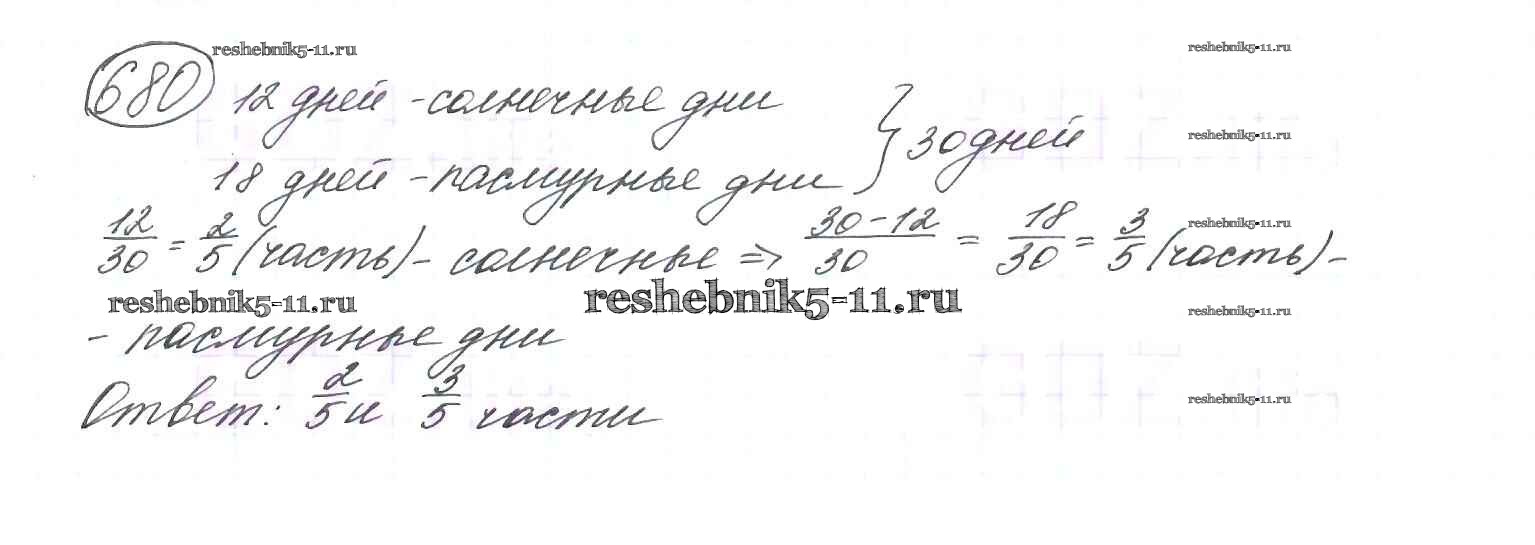 reshebnik5-11.ru reshebnik5-11.ru
680 12 дней - солнечные дни
18 дней - пасмурные дни } 30 дней
reshebnik5-11.ru
12/30 = 2/5 (часть) - солнечные => 30-12/30 = 18/30 = 3/5 (часть) -
reshebnik5-11.ru
reshebnik5-11.ru reshebnik5-11.ru reshebnik5-11.ru
- пасмурные дни
Ответ: 2/5 и 3/5 части
reshebnik5-11.ru